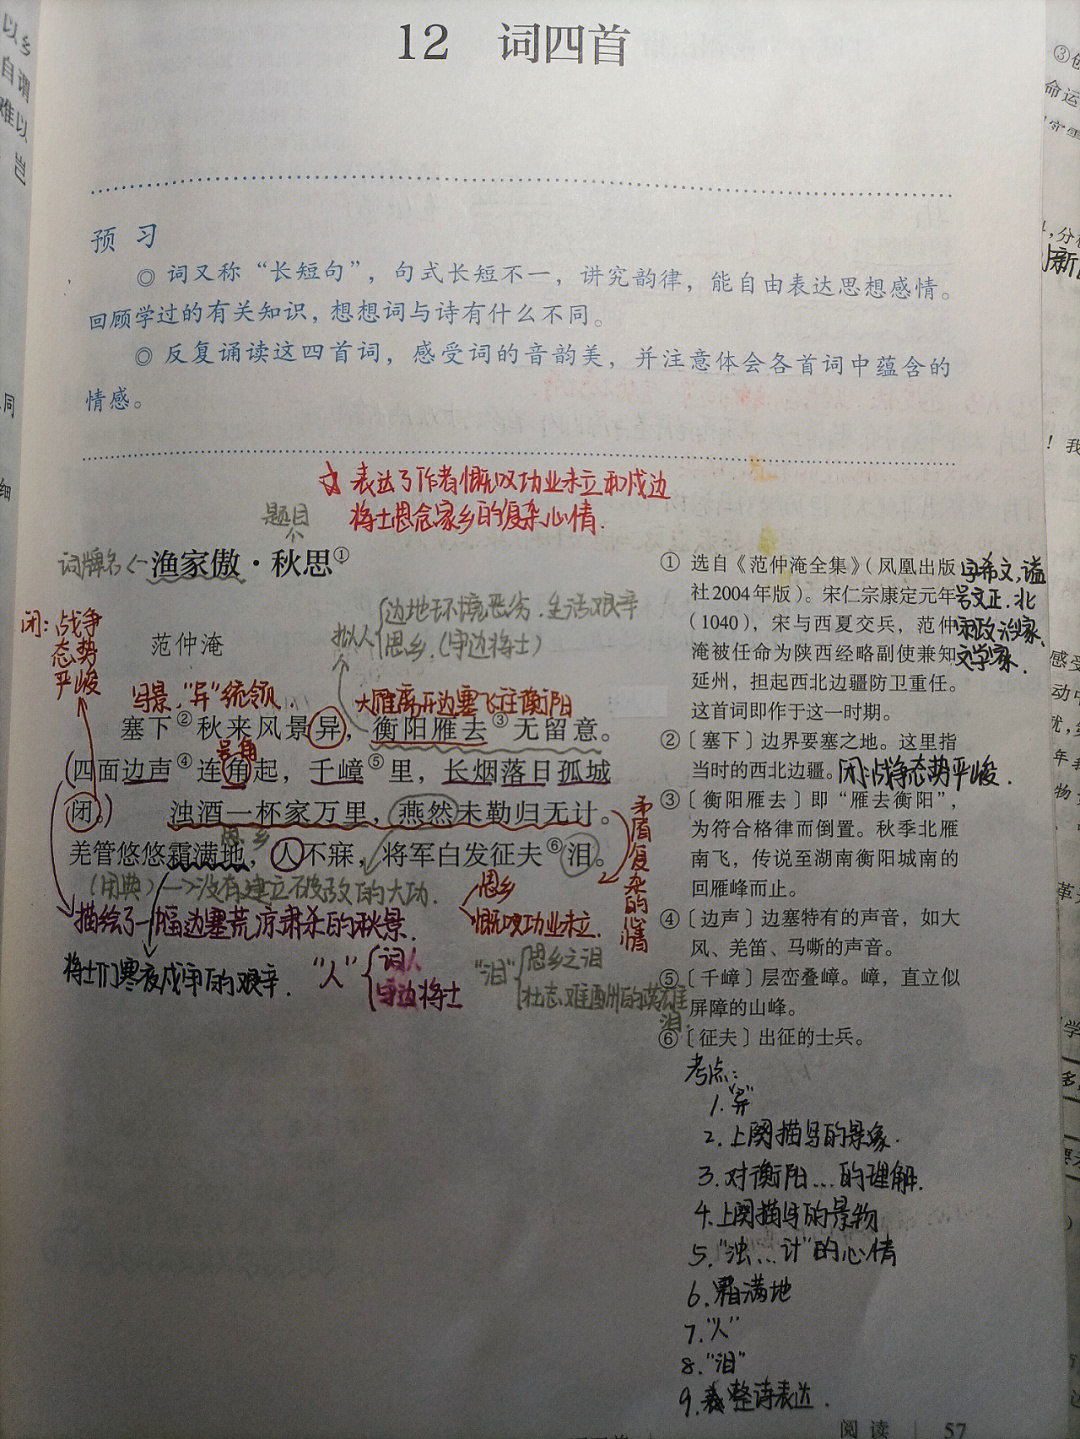 12 词四首
预 习
◎ 词又称“长短句”，句式长短不一，讲究韵律，能自由表达思想感情。
回顾学过的有关知识，想想词与诗有什么不同。
◎ 反复诵读这四首词，感受词的音韵美，并注意体会各首词中蕴含的
情感。
☆ 表达了作者慨叹功业未立和戍边
将士思念家乡的复杂心情.
题目
词牌名
渔家傲·秋思①
范仲淹
拟人
边地环境恶劣.生活艰辛
思乡.(守边将士)
闭:战争
态势
严峻
写景,“异”统领
大雁离开边塞飞往衡阳
塞下②秋来风景异，衡阳雁去③无留意。
号角
四面边声④连角起，千嶂⑤里，长烟落日孤城
闭。 浊酒一杯家万里，燕然未勒归无计。
思乡
羌管悠悠霜满地，人不寐，将军白发征夫⑥泪。
(用典)→没有建立破敌的大功.
思乡
慨叹功业未立.
矛盾复杂的心情
描绘了一幅边塞荒凉肃杀的秋景.
将士们寒夜戍守的艰辛.
“人”
词人
守边将士
“泪”
思乡之泪
壮志难酬的英雄
泪.
① 选自《范仲淹全集》（凤凰出版
社2004年版）。宋仁宗康定元年
（1040），宋与西夏交兵，范仲
淹被任命为陕西经略副使兼知
延州，担起西北边疆防卫重任。
这首词即作于这一时期。
字希文,谥
号文正.北
宋政治家、
文学家.
②〔塞下〕边界要塞之地。这里指
当时的西北边疆。
闭:战争态势严峻.
③〔衡阳雁去〕即“雁去衡阳”，
为符合格律而倒置。秋季北雁
南飞，传说至湖南衡阳城南的
回雁峰而止。
④〔边声〕边塞特有的声音，如大
风、羌笛、马嘶的声音。
⑤〔千嶂〕层峦叠嶂。嶂，直立似
屏障的山峰。
⑥〔征夫〕出征的士兵。
考点:
1.“异”
2.上阕描写的景象.
3.对衡阳…的理解.
4.上阕描写的景物
5.“浊…计”的心情
6.霜满地
7.“人”
8.“泪”
9.整诗表达.
阅读 57
以乡
自谓
难以
岂
同
细
③
命运
！我
感受
动
年
物